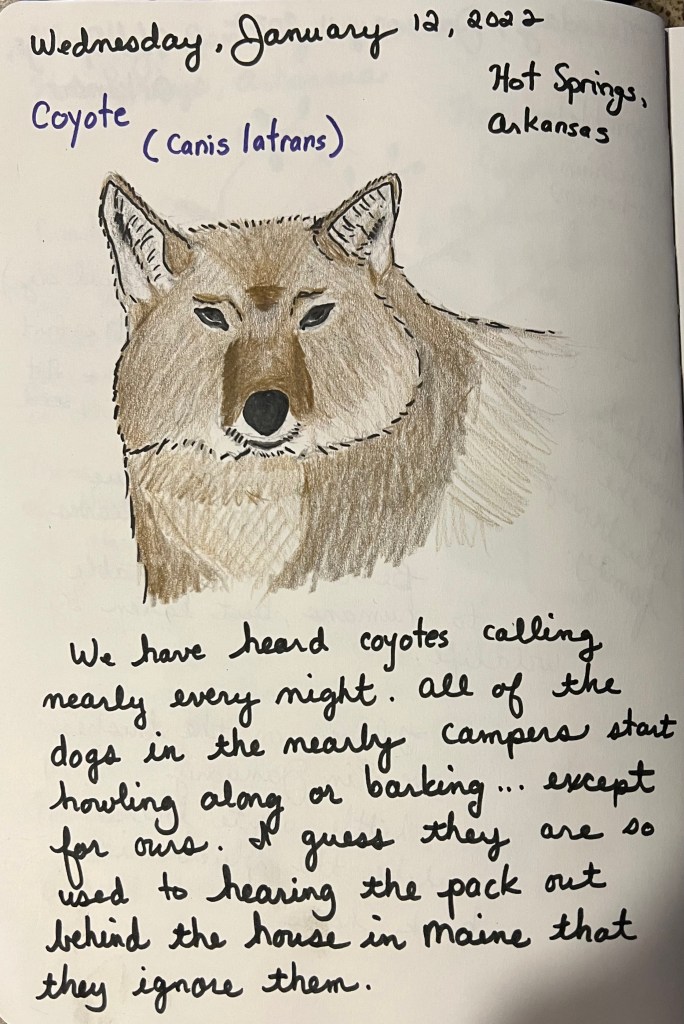 Wednesday, January 12, 2022
Hot Springs,
Arkansas
Coyote
(Canis latrans)
We have heard coyotes calling
nearly every night. All of the
dogs in the nearly campers start
howling along or barking... except
for ours. I guess they are so
used to hearing the pack out
behind the house in Maine that
they ignore them.